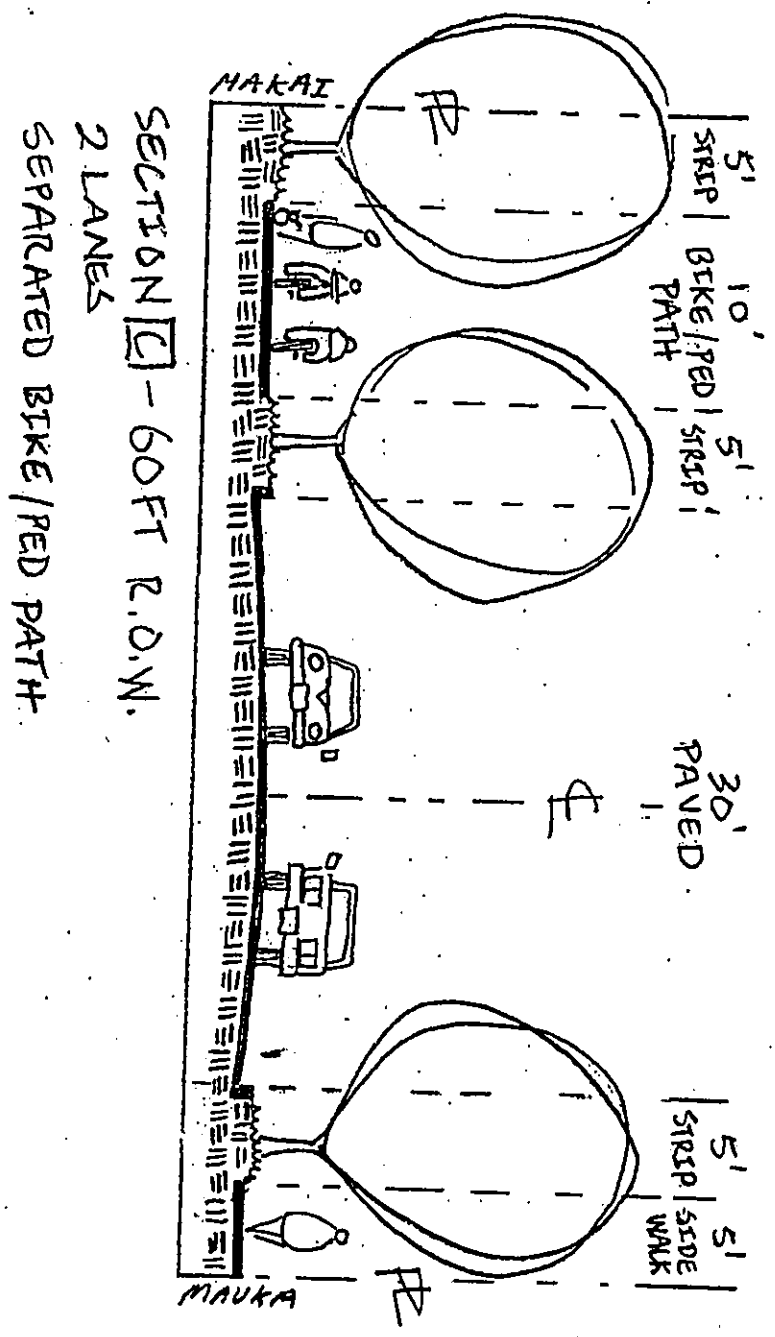 5'
STRIP
10'
BIKE/PED
PATH
5'
STRIP
30'
PAVED
5'
STRIP
5'
SIDE
WALK
PL
CL
PL
MAKAI
MAUKA
SECTION C - 60FT R.O.W.
2 LANES
SEPARATED BIKE/PED PATH